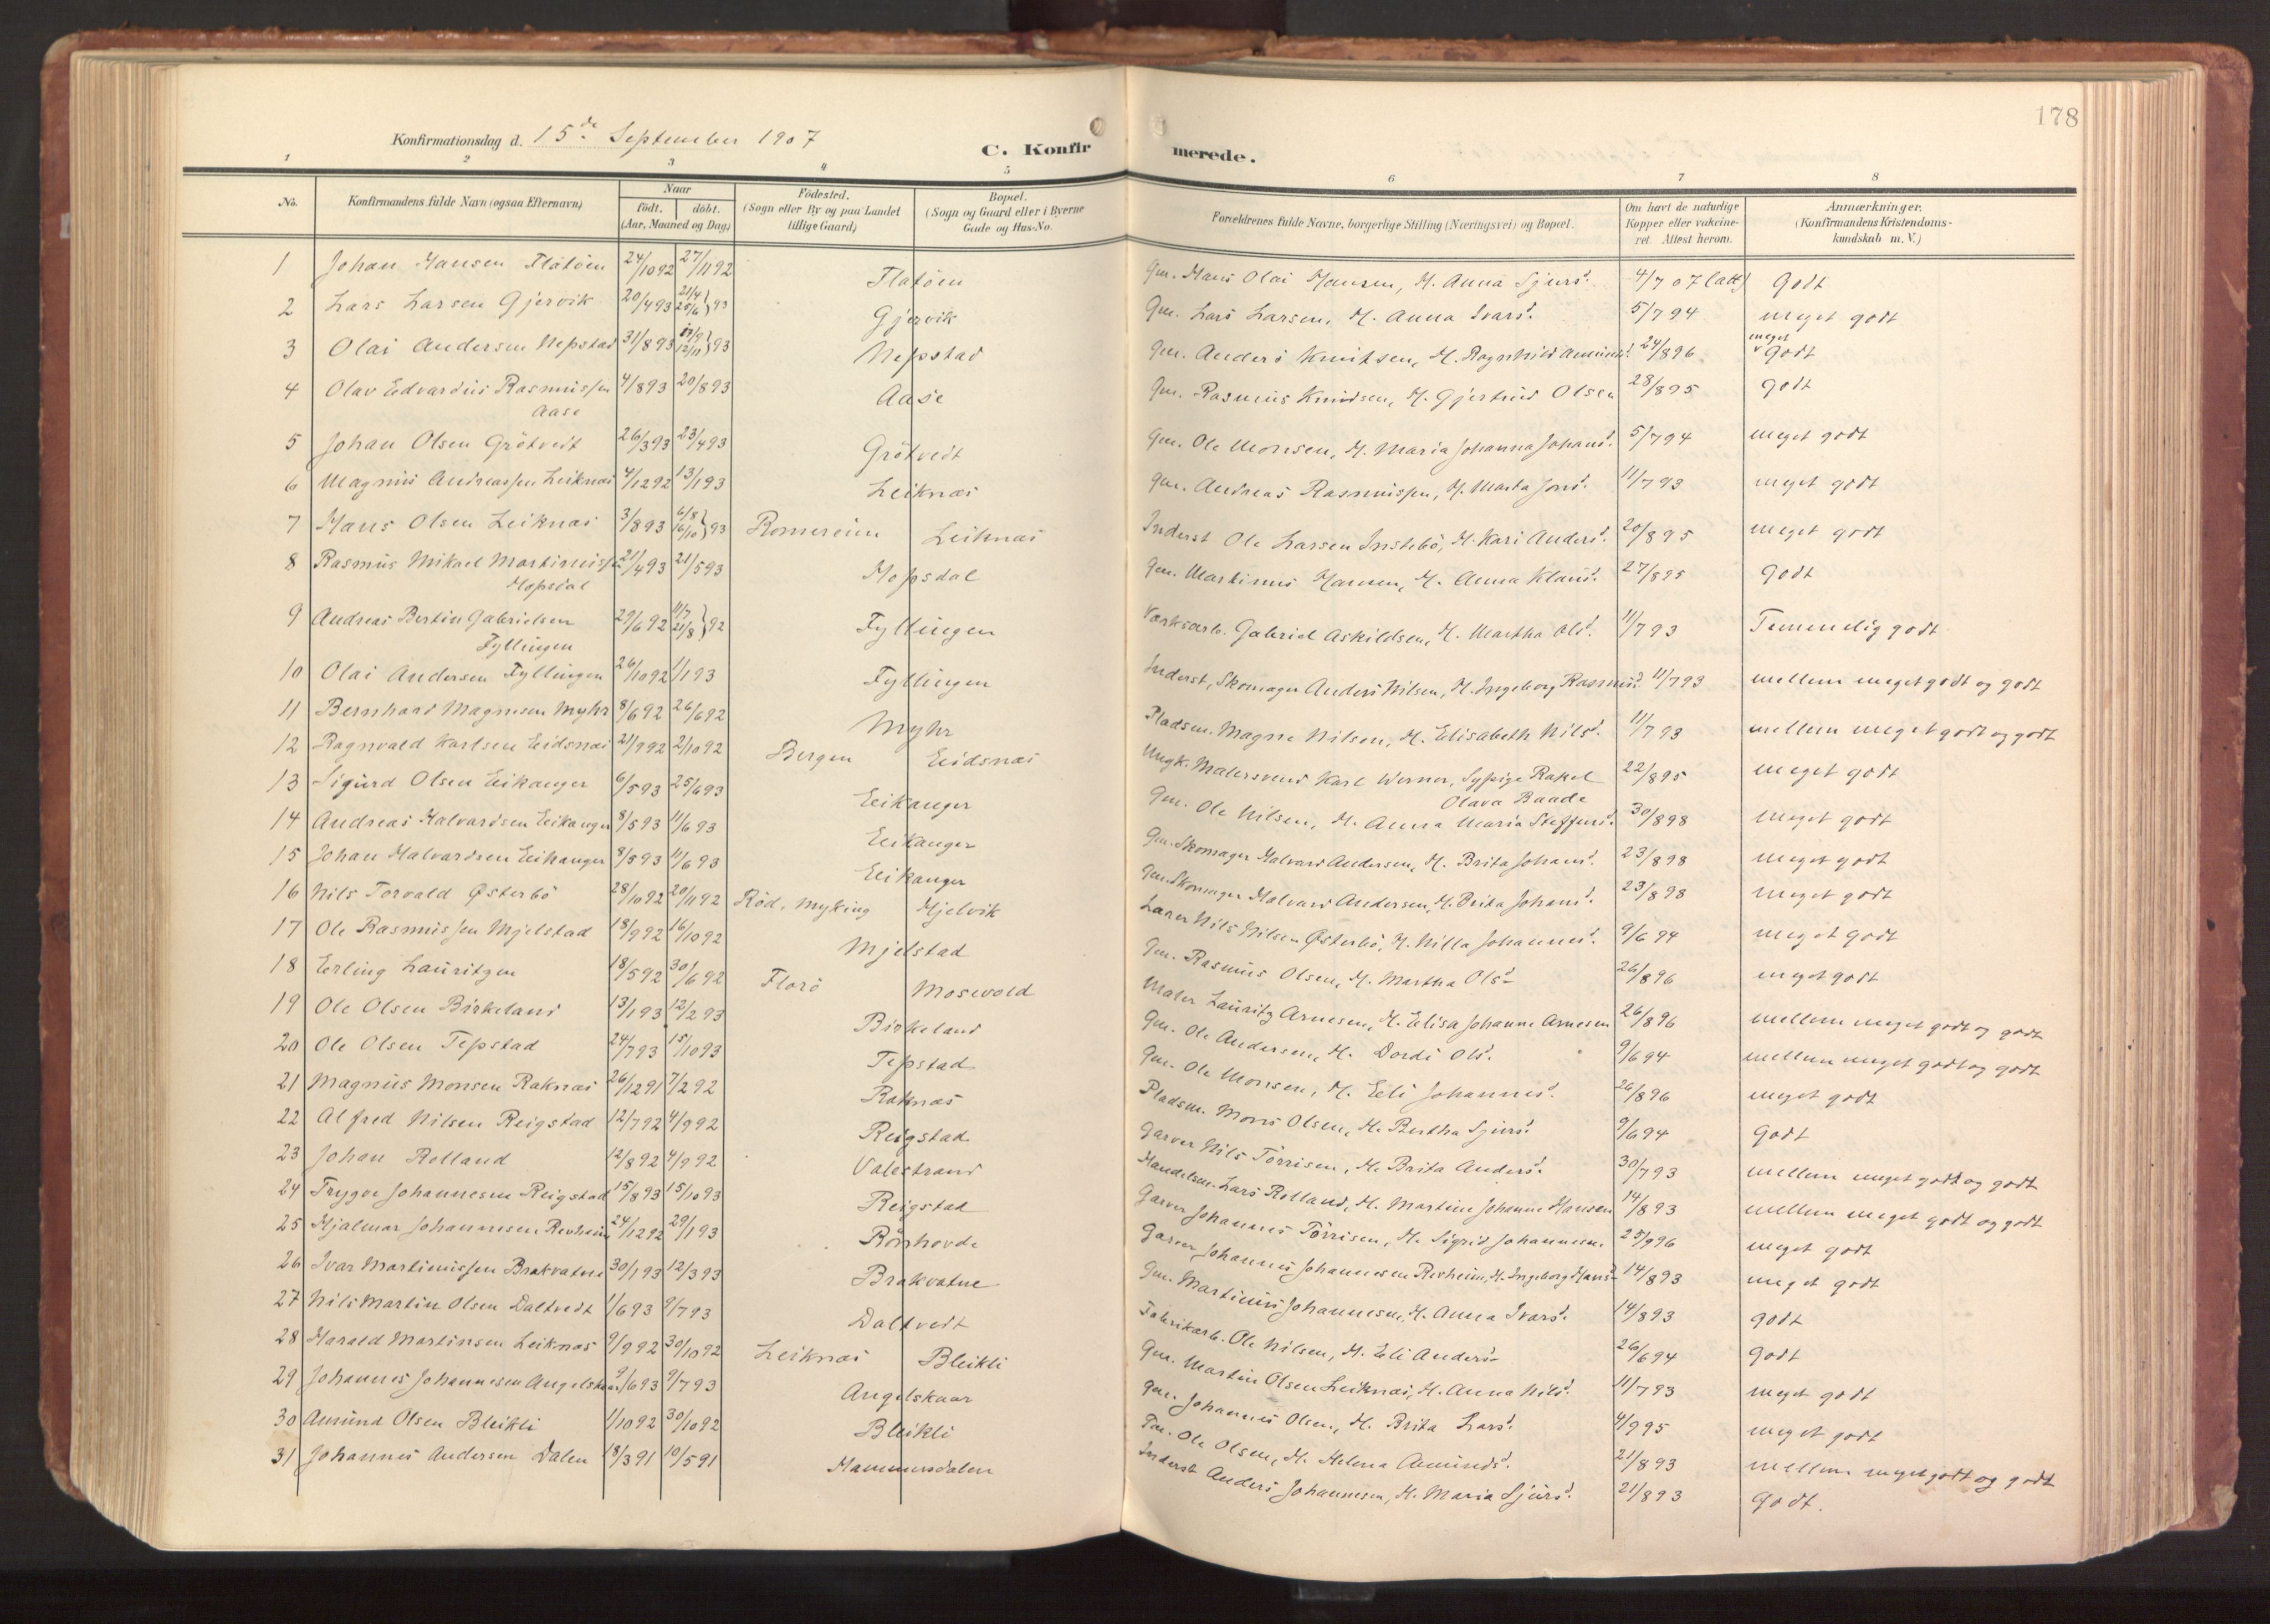 178
Konfirmationsdag d. 15de September 1907
C. Konfirmerede.
1 2 3 4 5 6 7 8
No. Konfirmandens fulde Navn (ogsaa Efternavn) Naar født. døbt. (Aar, Maaned og Dag) Fødested. (Sogn eller By og paa Landet tillige Gaard) Bopæl. (Sogn og Gaard eller i Byerne Gade og Hus-No. Forældrenes fulde Navne, borgerlige Stilling (Næringsvei) og Bopæl. Om havt de naturlige Kopper eller vakcineret. Attest herom. Anmærkninger. (Konfirmandens Kristendomskundskab m. V.)
1 Johan Hansen Flatöen 24/1092 27/1192 Flatöen Gm. Hans Olai Hansen, H. Anna Sjursd. 4/707 (att) Godt
2 Lars Larsen Gjervik 20/493 21/4 25/6 } 93 Gjervik Gm. Lars Larsen, H. Anna Ivarsd. 5/794 meget godt
3 Olai Andersen Nepstad 31/893 12/11 } 93 Nepstad Gm. Anders Knutsen, H. Ragnhild Amundsd. 24/896 meget godt
4 Olav Edvardus Rasmussen Aase 4/893 20/893 Aase Gm. Rasmus Knudsen, H. Gjertrud Olsen 28/895 godt
5 Johan Olsen Grötvedt 26/393 23/493 Grötvedt Gm. Ole Monsen, H. Maria Johanna Johansd. 5/794 meget godt
6 Magnus Andreassen Leiknæs 4/1292 13/193 Leiknæs Gm. Andreas Rasmussen, H. Marta Jonsd. 11/793 meget godt
7 Hans Olsen Leiknæs 3/893 6/8 16/10 } 93 Romereim Leiknæs Inderst Ole Larsen Instebö, H. Kari Andersd. 20/895 meget godt
8 Rasmus Mikael Martinuss. Hopsdal 21/493 21/593 Hopsdal Gm. Martinus Hansen, H. Anna Klausd. 27/895 Godt
9 Andreas Bertin Gabrielsen Fyllingen 29/692 11/7 21/8 } 92 Fyllingen Værksarb. Gabriel Askildsen, H. Martha Olsd. 11/793 Temmelig godt
10 Olai Andersen Fyllingen 26/1092 1/193 Fyllingen Inderst, Skomager Anders Nilsen, H. Ingeborg Rasmusd. 11/793 mellem meget godt og godt
11 Bernhard Magnesen Myhr 8/692 26/692 Myhr Pladsm. Magne Nilsen, H. Elisabeth Nilsd. 11/793 mellem meget godt og godt
12 Ragnvald Karlsen Eidsnæs 21/992 2/1092 Bergen Eidsnæs Ungk. Malersvend Karl Werner, Sypige Rakel Olava Baade 22/895 meget godt
13 Sigurd Olsen Eikanger 6/593 25/693 Eikanger Gm. Ole Nilsen, H. Anna Maria Steffensd. 30/898 meget godt
14 Andreas Halvardsen Eikanger 8/593 11/693 Eikanger Gm. Skomager Halvard Andersen, H. Brita Johansd. 23/898 meget godt
15 Johan Halvardsen Eikanger 8/593 11/693 Eikanger Gm. Skomager Halvard Andersen, H. Brita Johansd. 23/898 meget godt
16 Nils Torvald Østerbö 28/1092 20/1192 Röd, Myking Hjelvik Lærer Nils Nilsen Østerbö, H. Nilla Johannesd. 9/694 meget godt
17 Ole Rasmussen Mjelstad 18/992 16/1092 Mjelstad Gm. Rasmus Olsen, H. Martha Olsd. 26/896 meget godt
18 Erling Lauritzen 18/592 30/692 Florö Mosevold Maler Lauritz Arnesen, H. Elisa Johanne Arnesen 26/896 mellem meget godt og godt
19 Ole Olsen Birkeland 13/193 12/293 Birkeland Gm. Ole Andersen, H. Dordi Olsd. 9/694 mellem meget godt og godt
20 Ole Olsen Tepstad 24/793 15/1093 Tepstad Gm. Ole Monsen, H. Eli Johannesd. 26/896 meget godt
21 Magnus Monsen Raknæs 26/1291 7/292 Raknæs Pladsm. Mons Olsen, H. Bertha Sjursd. 9/694 Godt
22 Alfred Nilsen Reigstad 12/792 4/992 Reigstad Garver Nils Törrisen, H. Brita Andersd. 30/793 mellem meget godt og godt
23 Johan Rolland 12/892 4/992 Valestrand Handelsm. Lars Rolland, H. Martine Johanne Hansen 14/893 mellem meget godt og godt
24 Trygve Johannesen Reigstad 15/893 15/1093 Reigstad Garver Johannes Törrisen, H. Sigrid Johannesen. 25/996 meget godt
25 Hjalmar Johannesen Revheim 24/1292 29/193 Rörhovde Garver Johannes Johannesen Revheim, H. Ingeborg Hansd. 14/893 meget godt
26 Ivar Martinussen Brakvatne 30/193 12/393 Brakvatne Gm. Martinus Johannesen, H. Anna Ivarsd. 14/893 godt
27 Nils Martin Olsen Daltvedt 1/693 9/793 Daltvedt Fabrikarb. Ole Nilsen, H. Eli Andersd. 26/694 Godt
28 Harald Martinsen Leiknæs 9/992 30/1092 Leiknæs Bleikli Gm. Martin Olsen Leiknæs, H. Anna Nilsd. 11/793 meget godt
29 Johannes Johannesen Angelskaar 9/693 9/793 Angelskaar Gm. Johannes Olsen, H. Brita Larsd. 4/995 meget godt
30 Amund Olsen Bleikli 1/1092 30/1092 Bleikli Ole Olsen, H. Helena Amundsd. 21/893 mellem meget godt og godt
31 Johannes Andersen Dalen 18/391 10/591 Hammersdalen Inderst Anders Johannesen, H. Maria Sjursd. 21/893 Godt.